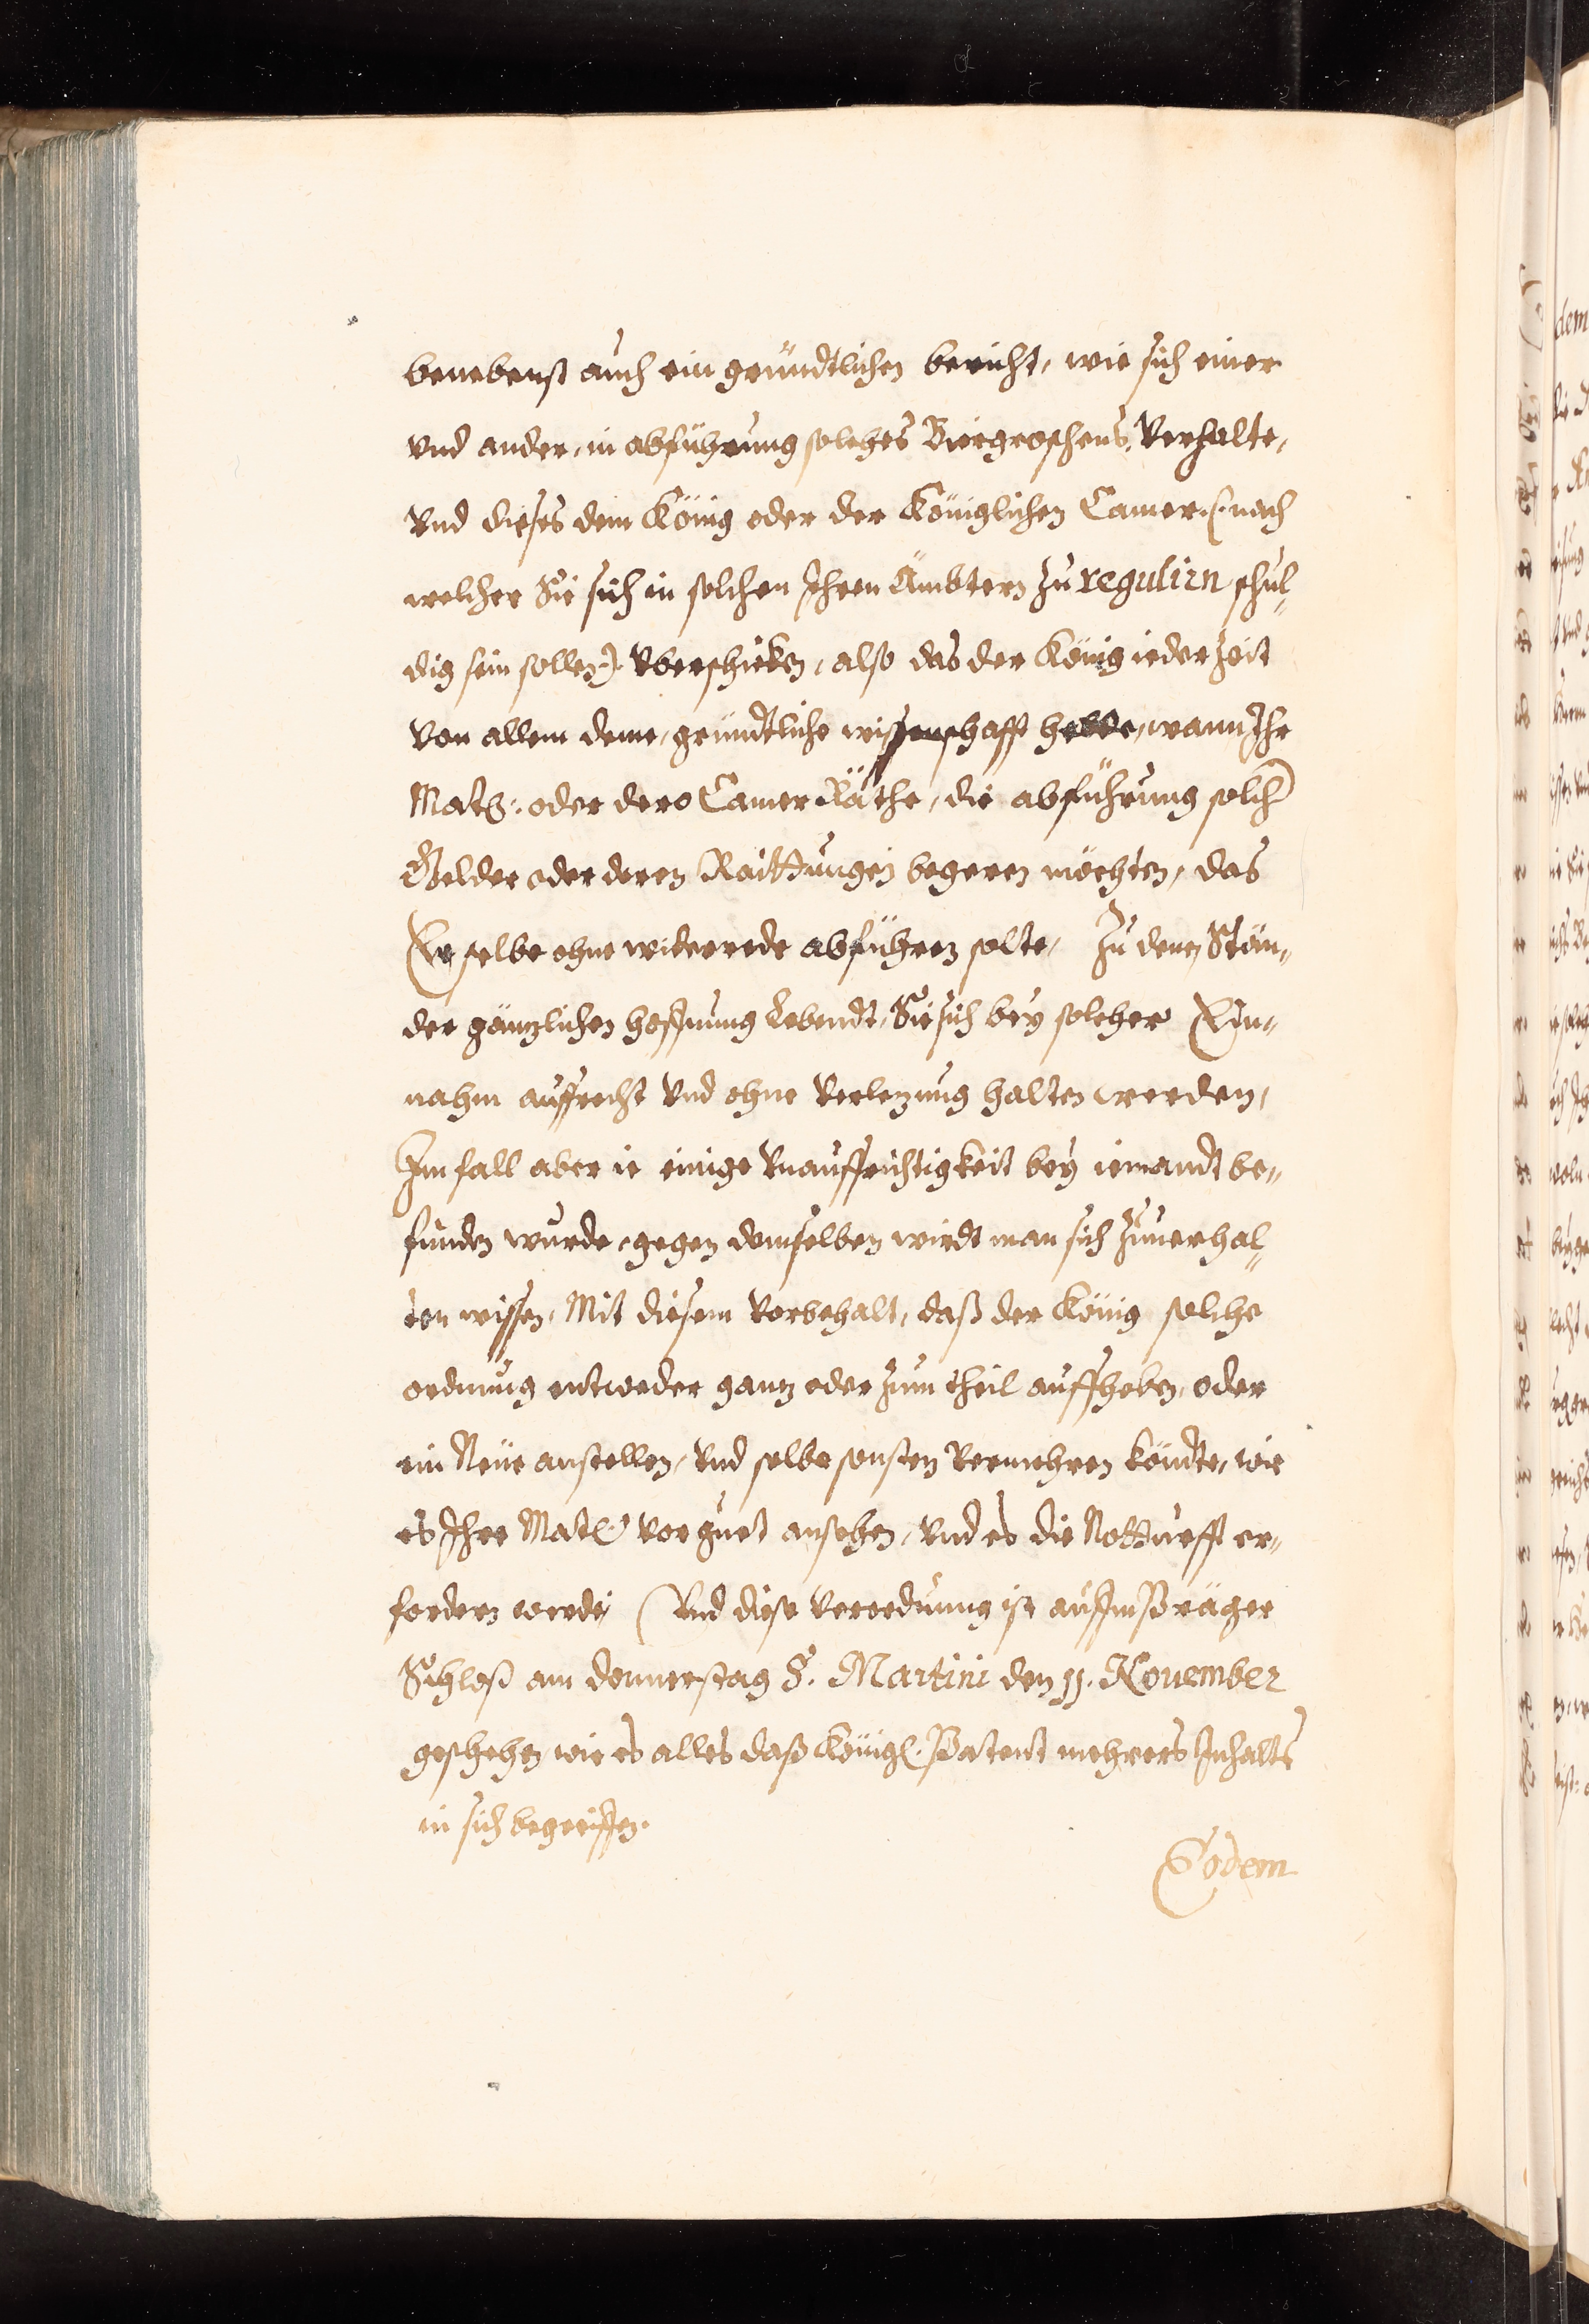 benebenst auch ein gründtlichen bericht, wie sich einer
vnd ander, in abführung solches Biergroschens, verhalte,
vnd dieses dem König oder der Königlichen Camer (: nach
welcher Sie sich in solchen Ihren Ämbtern zu regulirn schul„
dig sein sollen :) vberschicken, also das der König ieder Zeit
von allem deme, gründtliche wissenschafft hette, wann Ihr
Matt: oder dero Camer Räthe, die abführung solcher
Gelder oder deren Raittungen begeren möchten, das
Er selbe ohne widerrede abführen solte, Zu denen Stän„
der gäntzlichen hoffnung Lebendt, Sie sich bey solcher Ein„
nahm auffrecht vnd ohne verletzung halten werden,
Im fall aber ie einige vnauffrichtigkeit bey iemandt be„
funden wurde, gegen demselben wirdt man sich zuuerhal„
ten wissen, Mit diesem vorbehalt, daß der König solche
ordnung entweder gantz oder zum theil auffheben, oder
ein Neüe anstellen, vnd selbe sonsten vermehren köndte, wie
es Ihre Matt: vor guet ansehen, vnd es die Notturfft er„
fordern werde, Vnd diese verordnung ist auffm Präger
Schloß am donnerstag S. Martini den 11. Nouember
geschehen, wie es alles daß Königl. Patent mehrers Inhalts
in sich begreiffen.
Eodem